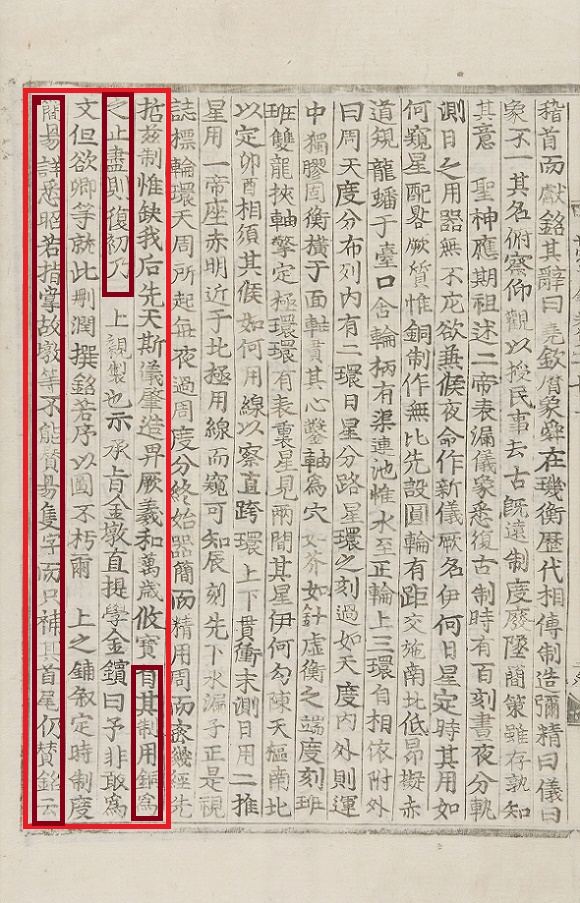 稽首而獻銘其辭曰堯欽曆象舜在璣衡歷代相傳制造彌精曰儀曰
象不一其名俯察仰觀以授民事去古旣遠制度廢墜簡策雖存孰知
其意 聖神應期祖述二帝表漏儀象悉復古制時有百刻晝夜分軌
測日之用器無不庀欲兼候夜命作新儀厥名伊何日星定時其用如
何窺星配晷厥質惟銅制作無比先設圓輪有距交施南北低昂擬赤
道規龍蟠于臺口含輪柄有渠連池惟水至正輪上三環自相依附外
曰周天度分布列內有二環日星分路星環之刻過如天度內外則運
中獨膠固衡橫于面軸貫其心鑿軸爲穴如芥如針虛衡之端度刻班
班雙龍挾軸擎定極環環有表裏星見兩間其星伊何勾陳天樞南北
以定卯酉相須其候如何用線以察直跨環上下貫衡末測日用二推
星用一帝座赤明近于北極用線而窺可知辰刻先下水漏子正是視
誌標輪環天周所起每夜過周度分終始器簡而精用周而密幾經先
哲玆制惟缺我后先天斯儀肇造畀厥羲和萬歲攸寶 自其制用銅爲
之止盡則復初乃 上親製也示承旨金墩直提學金鑌曰予非敢爲
文但欲卿等就此刪潤撰銘若序以圖不朽爾 上之鋪敍定時制度
簡易詳悉昭若指掌故墩等不能贊易隻字而只補其首尾仍贊銘云